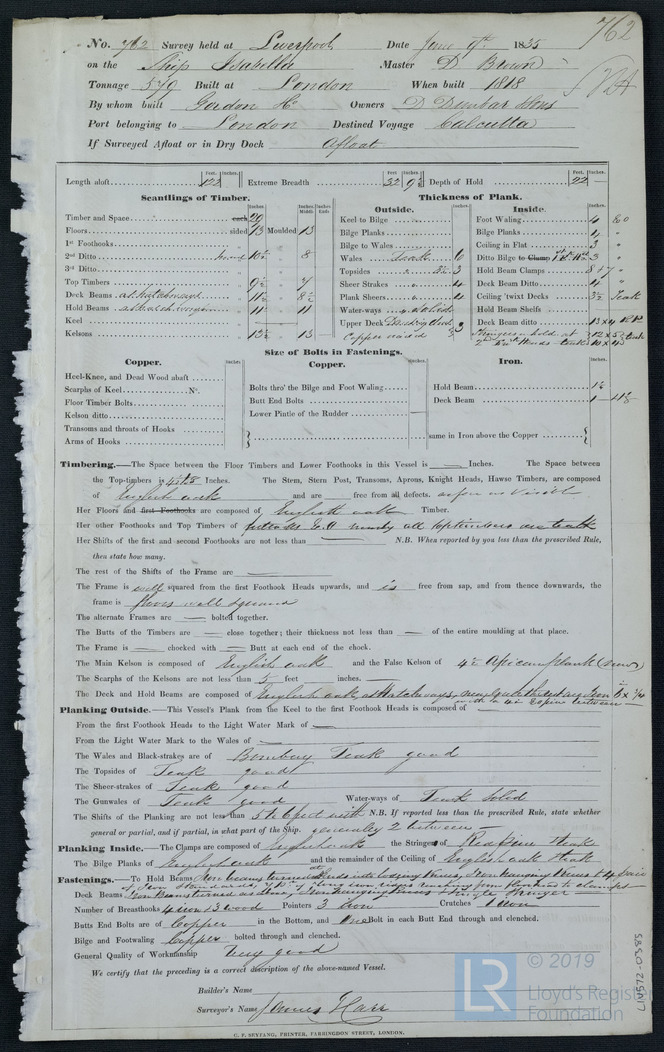 762
No. 762 Survey held at Liverpool Date June 9th 1835
on the Ship Isabella Master D Brown
Tonnage 579 Built at London When built 1818
By whom built Gordon & Co Owners D Dunbar & Sons
Port belonging to London Destined Voyage Calcutta
If Surveyed Afloat or in Dry Dock Afloat
Length aloft 122 Extreme Breadth 32 9½ Depth of Hold 22
Scantlings of Timber. Thickness of Plank.
Outside. Inside.
Timber and Space each 29 Keel to Bilge Foot Waling 4 EO
Floors sided 13 Moulded 13 Bilge Planks Bilge Planks 4 "
1st Foothooks Bilge to Wales Ceiling in Flat 3 "
2nd Ditto 10½ 8 Wales Teak 6 Ditto Bilge to Clamp 3 "
3rd Ditto Topsides 3½ 3 Hold Beam Clamps 8+7 "
Top Timbers 9½ 7 Sheer Strakes 4 Deck Beam Ditto 4 "
Deck Beams at hatchways 11½ 8½ Plank Sheers 4 Ceiling 'twixt Decks 3½ Teak
Hold Beams 11 11 Water-ways solid Hold Beam Shelfs
Keel Upper Deck 3 Deck Beam ditto 13 x 4 RP
Kelsons 13½ 13 Copper
Size of Bolts in Fastenings.
Copper. Copper. Iron.
Heel-Knee, and Dead Wood abaft
Scarphs of Keel No. Bolts thro' the Bilge and Foot Waling Hold Beam 1⅛
Floor Timber Bolts Butt End Bolts Deck Beam 1 1⅛
Kelson ditto Lower Pintle of the Rudder
Transoms and throats of Hooks same in Iron above the Copper
Arms of Hooks
Timbering.—The Space between the Floor Timbers and Lower Foothooks in this Vessel is — Inches. The Space between
the Top-timbers is Inches. The Stem, Stern Post, Transoms, Aprons, Knight Heads, Hawse Timbers, are composed
of English oak and are — free from all defects. as far as visible
Her Floors and first Foothooks are composed of English oak Timber.
Her other Foothooks and Top Timbers of futtocks E.O nearly all toptimbers are teak
Her Shifts of the first and second Foothooks are not less than — N.B. When reported by you less than the prescribed Rule,
then state how many.
The rest of the Shifts of the Frame are —
The Frame is well squared from the first Foothook Heads upwards, and is free from sap, and from thence downwards, the
frame is floors well squared
The alternate Frames are — bolted together.
The Butts of the Timbers are — close together; their thickness not less than — of the entire moulding at that place.
The Frame is — chocked with — Butt at each end of the chock.
The Main Kelson is composed of English oak and the False Kelson of 4 in African plank (new)
The Scarphs of the Kelsons are not less than 5 feet — inches.
The Deck and Hold Beams are composed of English oak at Hatchways,
Planking Outside.—This Vessel's Plank from the Keel to the first Foothook Heads is composed of —
From the first Foothook Heads to the Light Water Mark of —
From the Light Water Mark to the Wales of —
The Wales and Black-strakes are of Bombay Teak good
The Topsides of Teak good
The Sheer-strakes of Teak good
The Gunwales of Teak good Water-ways of Teak Solid
The Shifts of the Planking are not less than 5 to 6 feet with N.B. If reported less than the prescribed Rule, state whether
general or partial, and if partial, in what part of the Ship. generally 2 between —
Planking Inside.—The Clamps are composed of English oak the Stringers of Red Pine & teak
The Bilge Planks of English oak and the remainder of the Ceiling of English oak & teak
Fastenings.—To Hold Beams Iron beams turned
Deck Beams Iron Beams turned
Number of Breasthooks 4 iron & 3 wood Pointers 3 Iron Crutches 1 iron
Butts End Bolts are of Copper in the Bottom, and One Bolt in each Butt End through and clenched.
Bilge and Footwaling Copper bolted through and clenched.
General Quality of Workmanship Very good
We certify that the preceding is a correct description of the above-named Vessel.
Builder's Name
Surveyor's Name James Karr
C. F. SEYFANG, PRINTER, FARRINGDON STREET, LONDON.
LR © 2019
Lloyd's Register
Foundation
LON572-0385